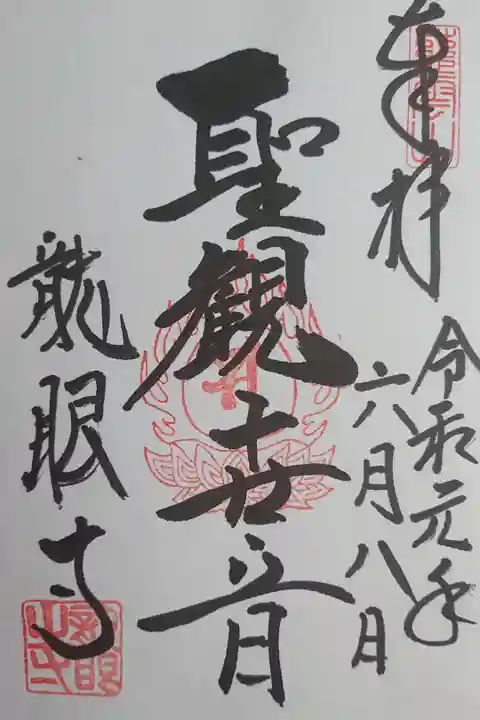 奉拝
令和元年
六月八日
聖観世音
龍眼寺